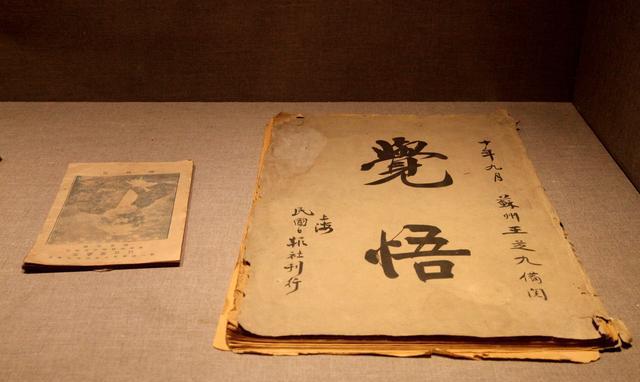 十年九月　蘇州王芝九備閱
覺悟
上海
民國日報社刊行